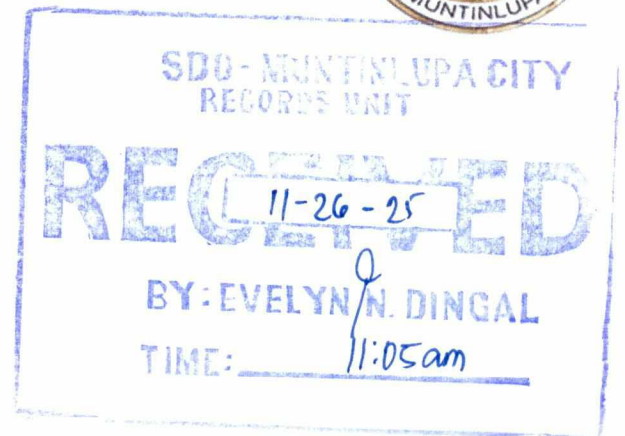 MUNTINLUPA
SDO - MUNTINLUPA CITY
RECORDS UNIT
RECEIVED
11-26-25
BY: EVELYN N. DINGAL
TIME: 11:05am